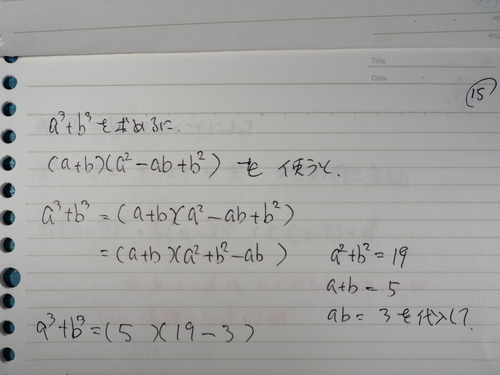 Title
Date
15
a³+b³を求めるに、
(a+b)(a²-ab+b²) を使うと、
a³+b³ = (a+b)(a²-ab+b²)
= (a+b)(a²+b²-ab)
a²+b²=19
a+b=5
ab=3を代入して
a³+b³=(5)(19-3)